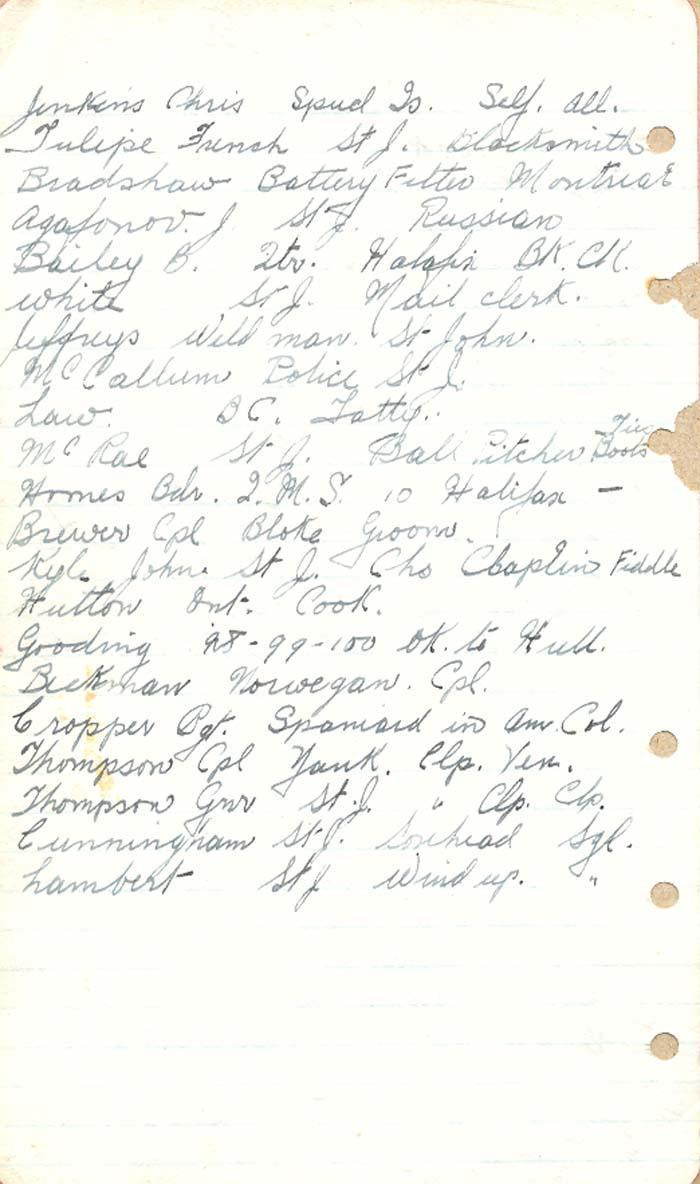 Jenkins Chris Spud Is. Self. all.
Tulipe French St J. Blacksmith
Bradshaw Battery Fitter Montreal
Agafonov. J. St J. Russian
Bailey B. Halafix BK. CK.
White St J. Mail clerk.
Jeffreys Wild man. St John.
McCallum Police St J.
Law. BC. Fatty.
McRae St J. Ball Pitcher Boots
Homes Bdr. 10 Halifax –
Brewer Cpl Bloke Groom.
Kyle John. St J. Chs Chaplin Fiddle
Hutton Ont. Cook.
Gooding 98-99-100 OK. to Hull.
Beekman Norwegan. Cpl.
Cropper Sgt. Spaniard in Am. Col.
Thompson Cpl Yank. Clp. Ven.
Thompson Gnr St. J. " Clp. Clp.
Cunningham St J. Sorehead Sgl.
Lambert St J Wind up. "